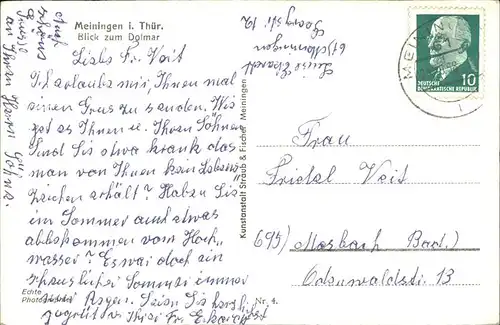 Meiningen i. Thür.
Blick zum Dolmar
Liebe Fr. Veit
Ich erlaube mir, Ihnen mal
einen Grus zu senden. Wie
get es Ihnen u. Ihren Söhnen
Sind Sie etwa krank das
man von Ihnen kein Lebens-
zeichen erhält? Haben Sie
im Sommer auch etwas
abbekommen vom Hoch
wasser? Es war doch ein
scheuslicher Sommer immer
Regen. Seien Sie herzl.
gegrüst v. Ihrer Fr. Eckardt
Auch
schöne
Grüsse
an Ihren Herrn Söhne.
Echte
Nr. 4.
Kunstanstalt Straub & Fischer Meiningen
Luise Eckardt
61 Meiningen
Georgstr. 12
MEIN
DEUTSCHE
DEMOKRATISCHE REPUBLIK
10
Frau
Friedel Veit
695/ Mosbach Bad./
Odenwaldstr. 13